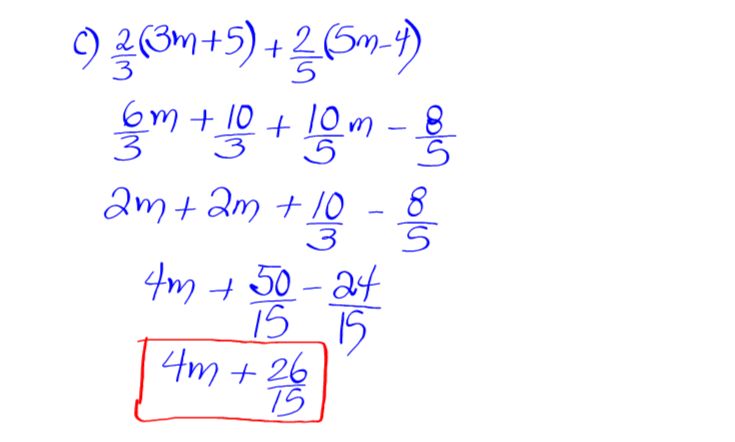 c) 2/3(3m+5) + 2/5(5m-4)
6/3m + 10/3 + 10/5m - 8/5
2m + 2m + 10/3 - 8/5
4m + 50/15 - 24/15
4m + 26/15